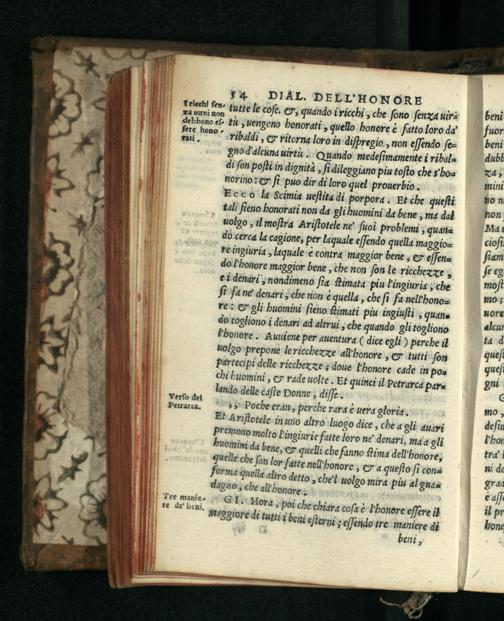 54 DIAL. DELL'HONORE
I ricchi sen-
za uirtù non
debbono es-
sere hono-
rati.
tutte le cose. &, quando i ricchi, che sono senza uir-
tù, uengono honorati, quello honore è fatto loro da'
ribaldi, & ritorna loro in dispregio, non essendo se-
gno d'alcuna uirtù. Quando medesimamente i ribal-
di son posti in dignità, si dileggiano piu tosto che s'ho-
norino: & si puo dir di loro quel prouerbio.
Ecco la Scimia uestita di porpora. Et che questi
tali sieno honorati non da gli huomini da bene, ma dal
uolgo, il mostra Aristotele ne' suoi problemi, quan-
do cerca la cagione, per laquale essendo quella maggio-
re ingiuria, laquale è contra maggior bene, & essen-
do l'honore maggior bene, che non son le ricchezze,
e i denari, nondimeno sia stimata piu l'ingiuria, che
si fa ne' denari, che non è quella, che si fa nell'hono-
re: & gli huomini sieno stimati piu ingiusti, quan-
do togliono i denari ad altrui, che quando gli togliono
l'honore. Auuiene per auentura (dice egli) perche il
uolgo prepone le ricchezze all'honore, & tutti son
partecipi delle ricchezze; doue l'honore cade in po-
chi huomini, & rade uolte. Et quinci il Petrarca par-
lando delle caste Donne, disse.
Verso del
Petrarca.
,, Poche eran, perche rara è uera gloria.
Et Aristotele in uno altro luogo dice, che a gli auari
premono molto l'ingiurie fatte loro ne' denari, ma a gli
huomini da bene, & quelli che fanno stima dell'honore,
quelle che son lor fatte nell'honore, & a questo si con-
forma quella altro detto, che'l uolgo mira piu al gua-
dagno, che all'honore.
Tre manie-
re de' beni.
GI. Hora, poi che chiara cosa è l'honore essere il
maggiore di tutti i beni esterni; essendo tre maniere di
beni,